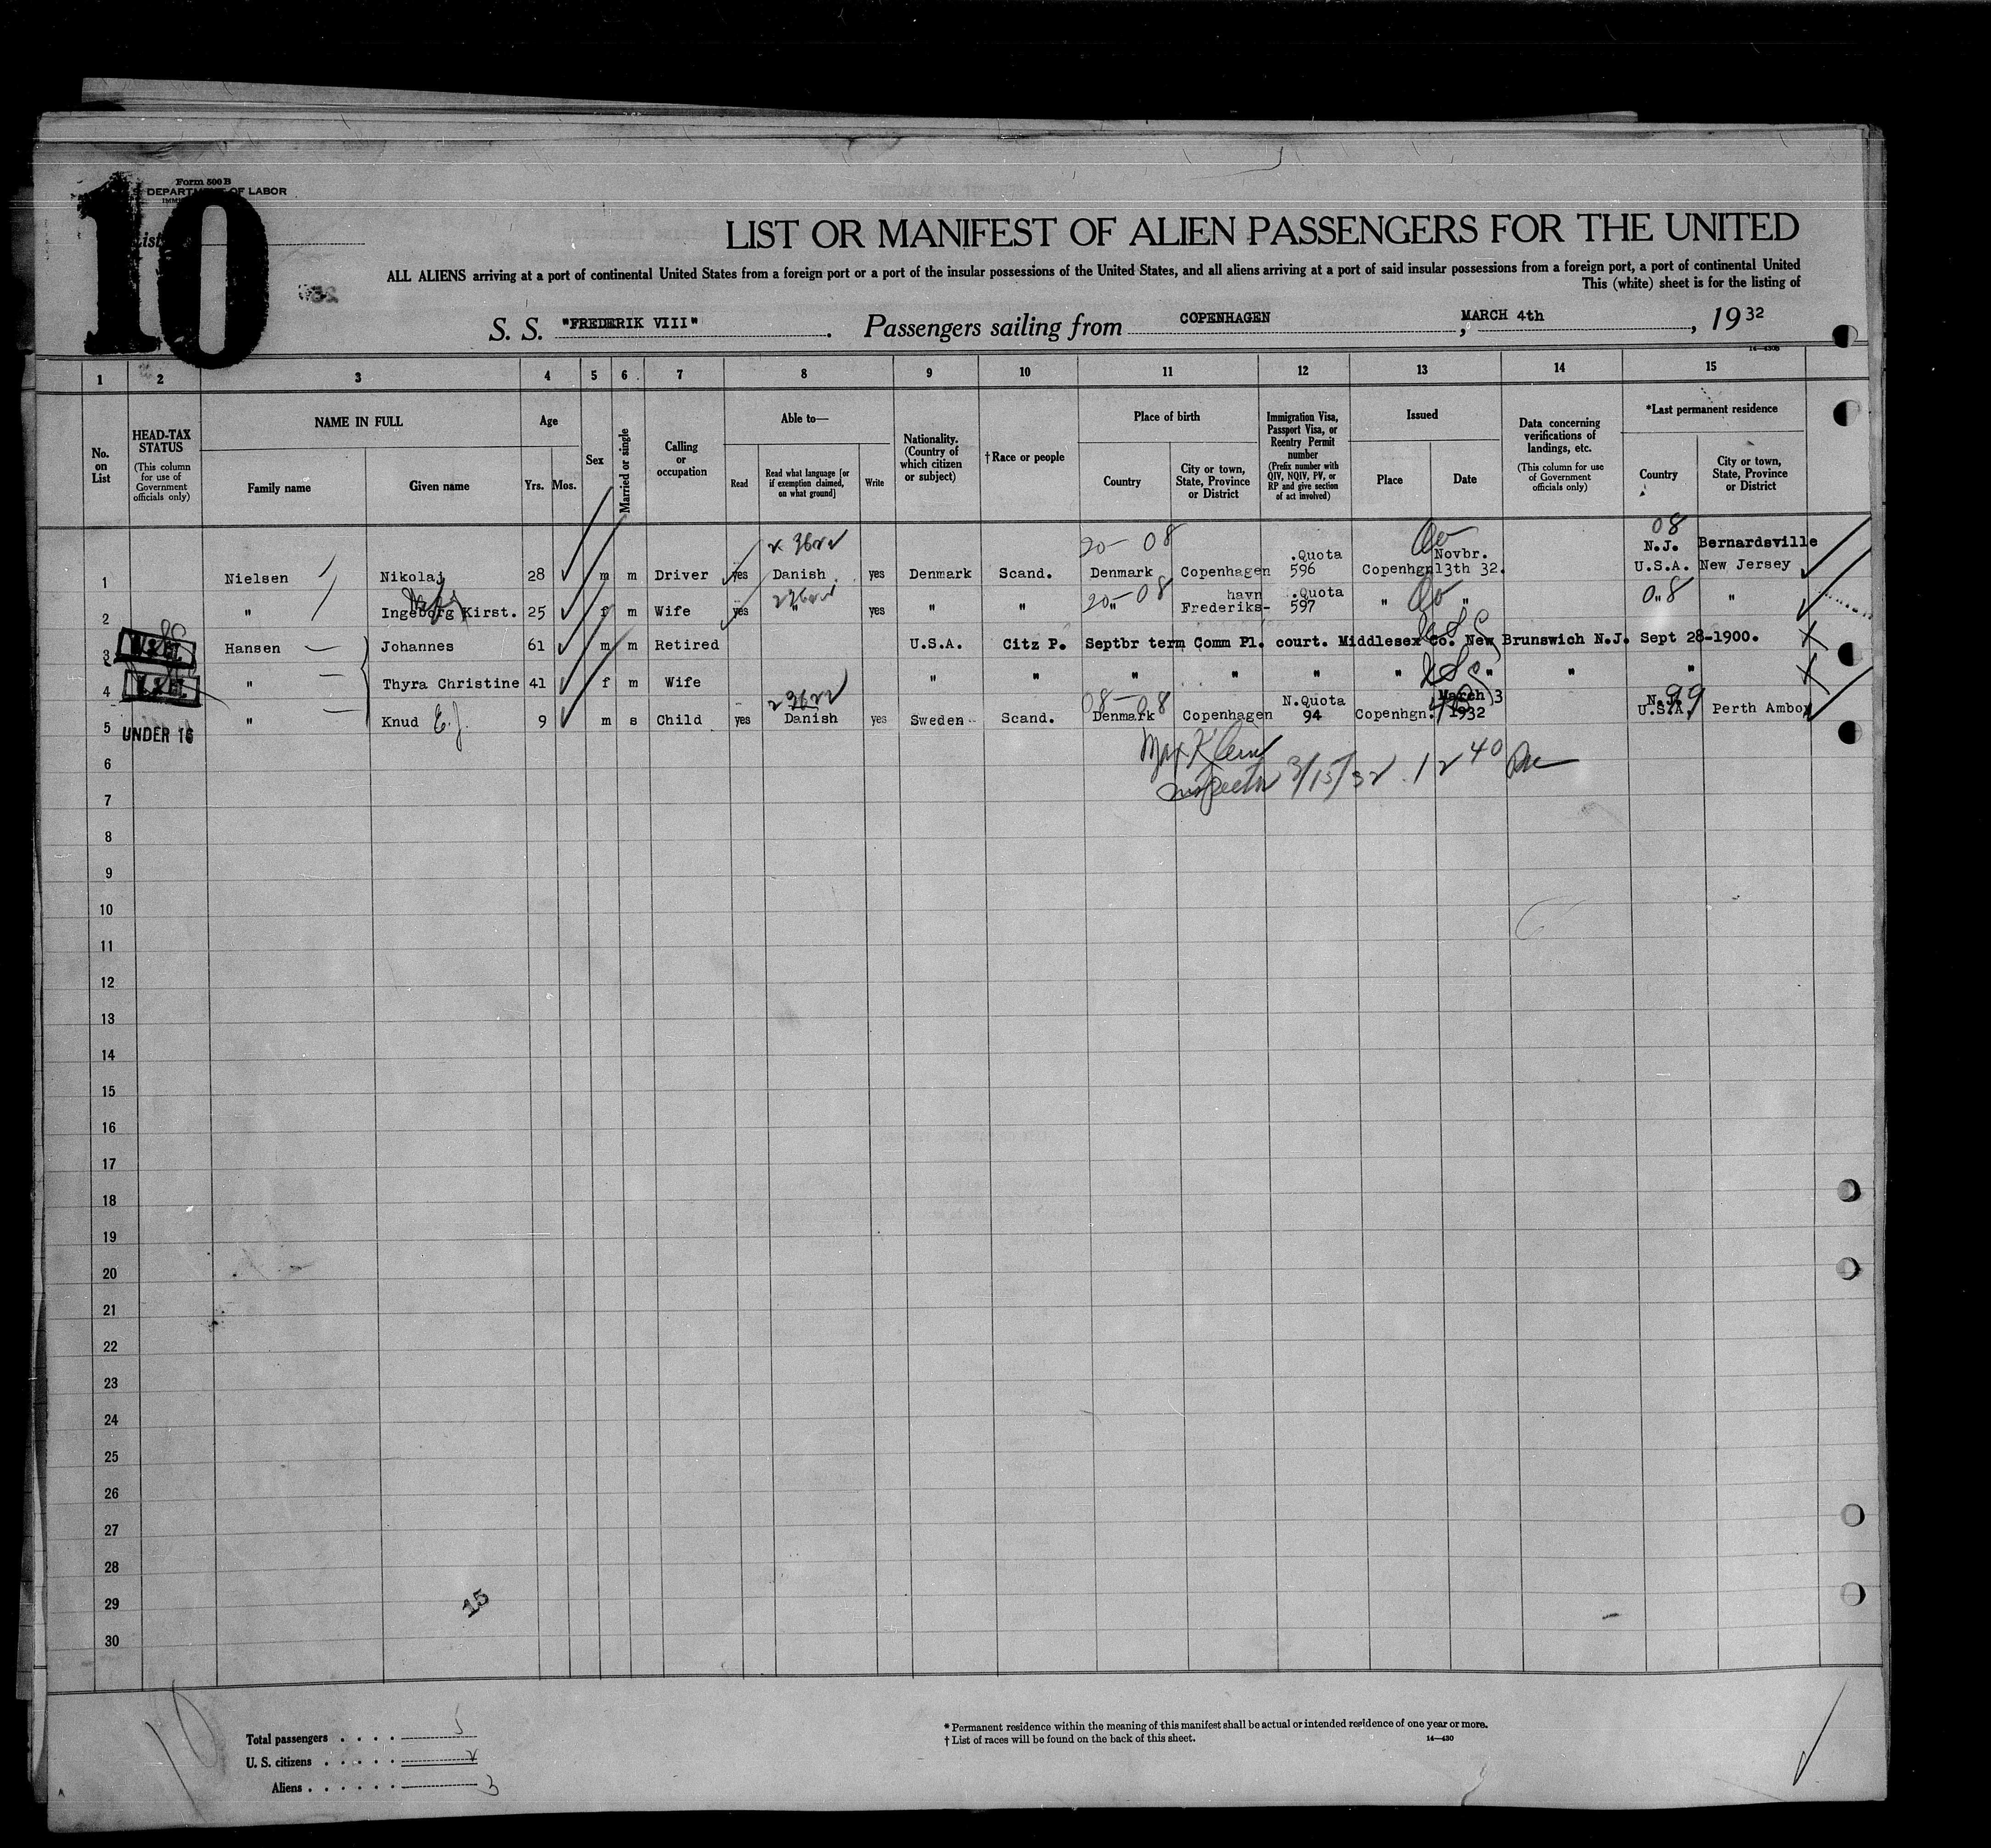 Form 500 B
DEPARTMENT OF LABOR
10
List
LIST OR MANIFEST OF ALIEN PASSENGERS FOR THE UNITED
ALL ALIENS arriving at a port of continental United States from a foreign port or a port of the insular possessions of the United States, and all aliens arriving at a port of said insular possessions from a foreign port, a port of continental United
This (white) sheet is for the listing of
S. S. "FREDERIK VIII". Passengers sailing from COPENHAGEN, MARCH 4th, 1932
14—430B
1 2 3 4 5 6 7 8 9 10 11 12 13 14 15
No. on List
HEAD-TAX STATUS (This column for use of Government officials only)
NAME IN FULL
Family name Given name
Age
Yrs. Mos.
Sex
Married or single
Calling or occupation
Able to—
Read Read what language [or if exemption claimed, on what ground] Write
Nationality. (Country of which citizen or subject)
†Race or people
Place of birth
Country City or town, State, Province or District
Immigration Visa, Passport Visa, or Reentry Permit number (Prefix number with QIV, NQIV, PV, or RP and give section of act involved)
Issued
Place Date
Data concerning verifications of landings, etc. (This column for use of Government officials only)
*Last permanent residence
Country City or town, State, Province or District
20-08 08
.Quota Novbr. N.J. Bernardsville
1 Nielsen Nikolaj 28 m m Driver yes Danish yes Denmark Scand. Denmark Copenhagen 596 Copenhgn 13th 32. U.S.A. New Jersey
20-08 havn .Quota 08
2 " Ingeborg Kirst. 25 f m Wife yes " yes " " " Frederiks- 597 " " " "
3 Hansen Johannes 61 m m Retired U.S.A. Citz P. Septbr term Comm Pl. court. Middlesex Co. New Brunswich N.J. Sept 28-1900.
4 " Thyra Christine 41 f m Wife " " " " " " " " "
08-08 N.Quota March 3 N.J. 99
5 UNDER 16 " Knud E.J. 9 m s Child yes Danish yes Sweden Scand. Denmark Copenhagen 94 Copenhgn. 1932 U.S.A. Perth Amboy
Max Klein
6
Inspector 3/15/32 12 40
7
8
9
10
11
12
13
14
15
16
17
18
19
20
21
22
23
24
25
26
27
28
29
15
30
Total passengers . . . . 5
U. S. citizens . . . . . 2
Aliens . . . . . . 3
* Permanent residence within the meaning of this manifest shall be actual or intended residence of one year or more.
† List of races will be found on the back of this sheet. 14—430